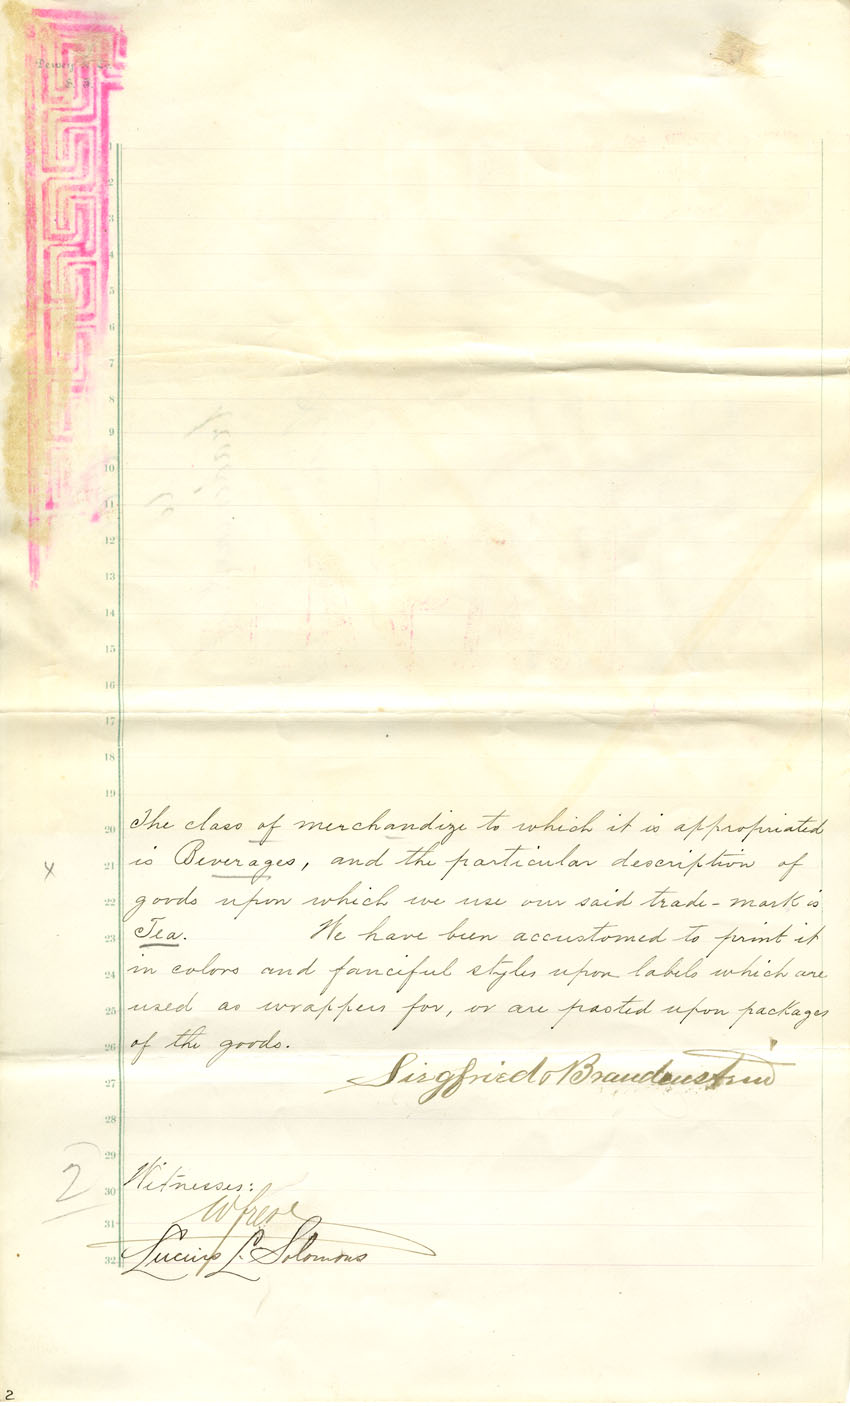 1
2
3
4
5
6
7
8
9
10
11
12
13
14
15
16
17
18
19
20 The class of merchandize to which it is appropriated
x 21 is Beverages, and the particular description of
22 goods upon which we use our said trade-mark is
23 Tea. We have been accustomed to print it
24 in colors and fanciful styles upon labels which are
25 used as wrappers for, or are pasted upon packages
26 of the goods.
27 Siegfried & Brandenstein
28
29
2 30 Witnesses:
31
32 Lucius L. Solomons
2